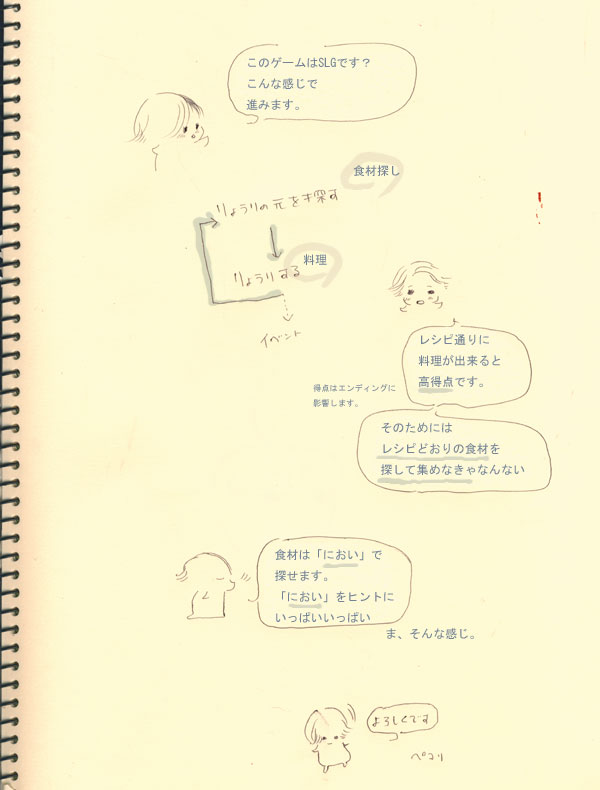 このゲームはSLGです？
こんな感じで
進みます。
食材探し
りょうりの元を探す
料理
りょうりする
イベント
レシピ通りに
料理が出来ると
高得点です。
得点はエンディングに
影響します。
そのためには
レシピどおりの食材を
探して集めなきゃなんない
食材は「におい」で
探せます。
「におい」をヒントに
いっぱいいっぱい
ま、そんな感じ。
よろしくです
ペコリ